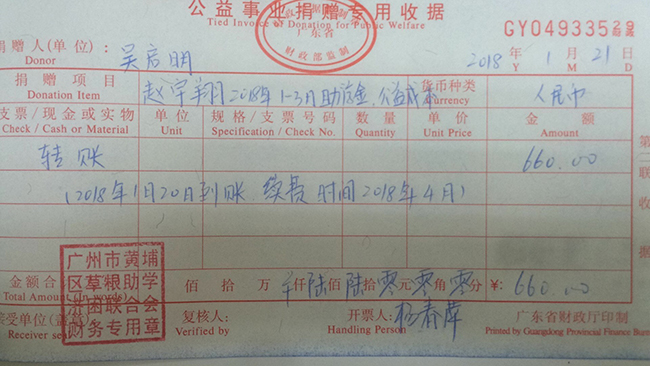 公益事业捐赠专用收据
Tied Invoice of Donation for Public Welfare
广东省
财政部监制
GY04933529
捐赠人(单位): 吴启明 2018 年 1 月 21 日
Donor Y M D
捐赠项目 赵宇翔2018年1-3月助洁金,公益成本 货币种类 人民币
Donation Item Currency
支票/现金或实物 单位 规格/支票号码 数量 单价 金额
Check / Cash or Material Unit Specification / Check No. Quantity Unit Price Amount
转账 660.00
(2018年1月20日到账,续费时间2018年4月)
第二联 收据
金额合 佰 拾 万 仟陆佰陆拾零元零角零分 ¥: 660.00
Total Amount (in words)
广州市黄埔
区草根助学
济困联合会
财务专用章
接受单位(盖章) 复核人: 开票人: 杨春萍 广东省财政厅印制
Receiver seal Verified by Handling Person Printed by Guangdong Provincial Finance Bureau